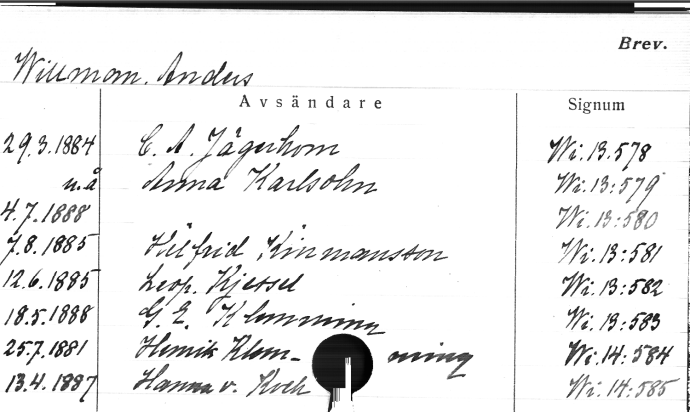 Brev.
Willman, Anders
Avsändare Signum
29.3.1884 C. A. Jägerhorn Wi.13.578
u.å Anna Karlsohn Wi.13:579
4.7.1888 Wi.13:580
7.8.1885 Hilfrid Kinmansson Wi.13:581
12.6.1885 Leop. Kjessel Wi.13:582
18.5.1888 G. E. Klemming Wi.13:583
25.7.1881 Henrik Klem- ming Wi.14:584
13.4.1887 Hanna v. Koch Wi.14:585